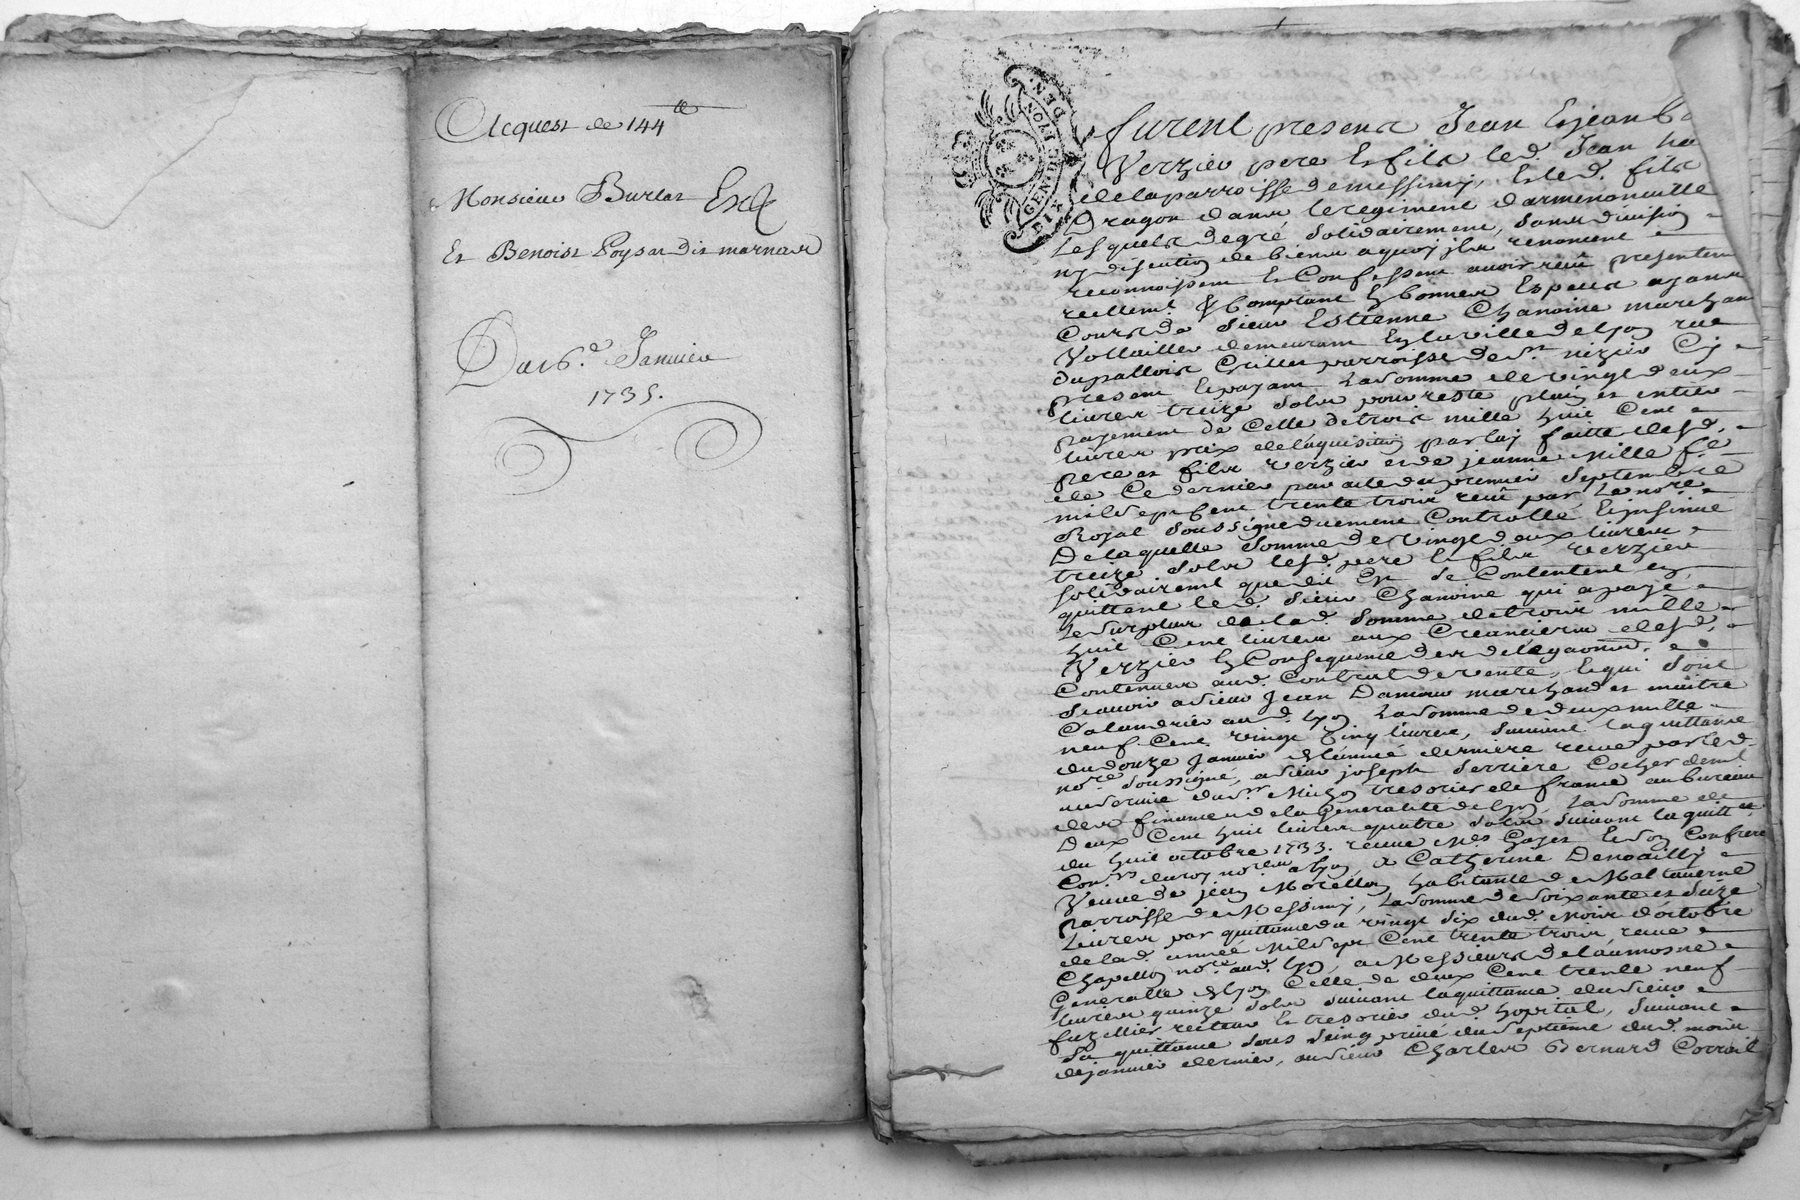 Acquest de 144 ll
Monsieur Burlat
Et Benoist Poysat dit marnas
Du 6.e Janvier
1735.
GEN. DE LYON
DIX DEN.
furent presens Jean Et jean
Verzier pere Et fils led. Jean
de la parroisse de messimy, Et led. fils
Dragon dans le regiment d'armenonville
Lesquels de gré solidairement, sans division
ny discution de biens a quoy ils renoncent
reconnoissent Et Confessent avoir receu presentem
reellem.t & Comptant En bonnes Especes ayans
Cours de sieur Estienne Chanoine marchan
Vollailler demeurant En la ville de Lyon rue
du pallais Grillet parroisse de St. nizier Cy
present Et payant La somme de vingt deux
livres treize sols pour reste plein et entier
payement de Celle de trois mille huit Cent
livres prix de l'aquisition par luy faitte desd.
pere et fils verzier et de jeanne Mille fe
de Ce dernier par acte du premier septembre
mil sept Cent trente trois receu par Le nore
Royal soussigné duement Controllé Et insinué
De laquelle somme de vingt deux livres
treize sols lesd. pere Et fils verzier
solidairemt que dit Est se Contentent en
quittent led. sieur Chanoine qui a payé
Le surplus de lad. somme de trois mille
huit Cent livres aux Creanciers desd.
Verzier En Consequence des delegaons
Contenues aud. Contrat de vente, Et qui sont
scavoir a sieur Jean Damour marchand et maitre
Calandrier aud. Lyon La somme de deux mille
neuf Cent vingt Cinq livres, suivant la quittance
du douze janvier de l'année derniere receue par led.
nore. soussigné, a sieur joseph serriere Cocher demt
au service du sr. Michon tresorier de france au bureau
des finances de la Generalité de Lyon La somme de
Deux Cent huit livres quatre sols suivant la quittce
du huit octobre 1733. receue Mes. Gayet Et son Confrere
Conrs. du roy nores a Lyon, a Catherine Denoailly
Veuve de jean Morellon habitante de Maltaverne
parroisse de Messimy, La somme de soixante et seize
Livres par quittance du vingt six dud. mois d'octobre
de lad. année Mil sept Cent trente trois receue
Chapellon nore. aud. Lyon, a Messieurs de l'aumosne
Generalle de Lyon Celle de deux Cent trente neuf
livres quinze sols suivant la quittance du sieur
fuzellier recteur Et tresorier dud. hopital, suivant
sa quittance sous seing privé du septieme dud. mois
de janvier dernier, au sieur Charles Bernard